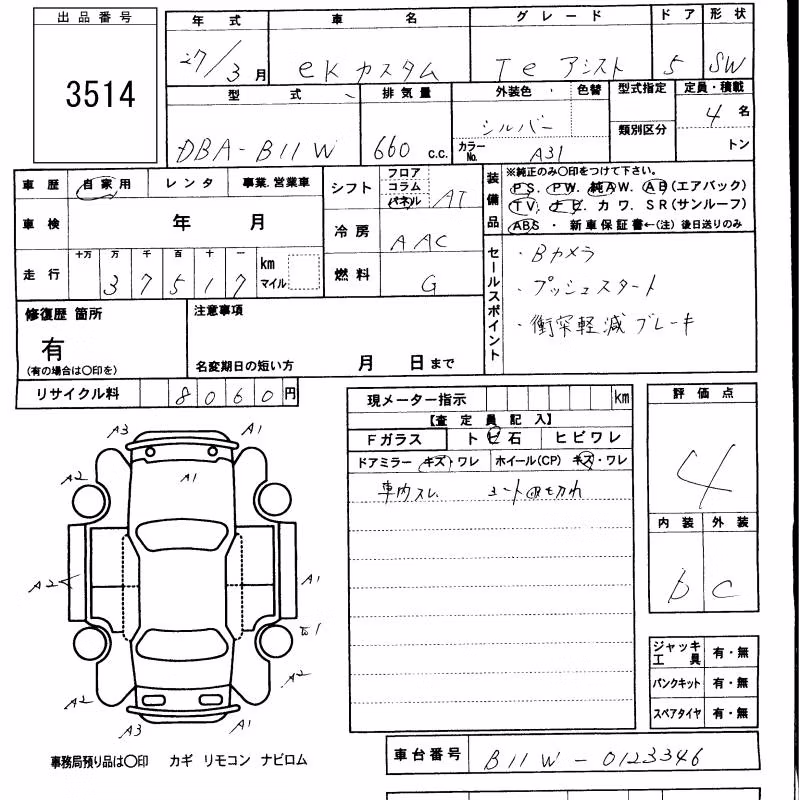 出品番号
3514
年式 車名 グレード ドア 形状
27/3月 eKカスタム Te アシスト 5 SW
型式 排気量 外装色 色替 型式指定 定員・積載
DBA-B11W 660 c.c. シルバー 類別区分 4名
カラーNo. A31 トン
車歴 自家用 レンタ 事業.営業車
シフト フロア コラム パネル AT
装備品
※純正のみ〇印をつけて下さい。
PS. PW. 純AW. AB(エアバック)
TV. ナビ. カワ. SR(サンルーフ)
ABS ・ 新車保証書←(注) 後日送りのみ
車検 年 月
冷房 AAC
走行 十万 万 千 百 十 一
37517 km マイル
燃料 G
セールスポイント
・Bカメラ
・プッシュスタート
・衝突軽減ブレーキ
修復歴 箇所
有
(有の場合は〇印を)
注意事項
名変期日の短い方 月 日まで
リサイクル料 8060円
現メーター指示 km
【査定員記入】
Fガラス トビ石 ヒビワレ
ドアミラー キズ・ワレ ホイール(CP) キズ・ワレ
車内スレ
評価点
4
内装 外装
b C
A3 A1
A1
A2 A2
A2 A1
A2 A2
A3 A1
ジャッキ工具 有・無
パンクキット 有・無
スペアタイヤ 有・無
事務局預り品は〇印 カギ リモコン ナビロム
車台番号 B11W-0123346